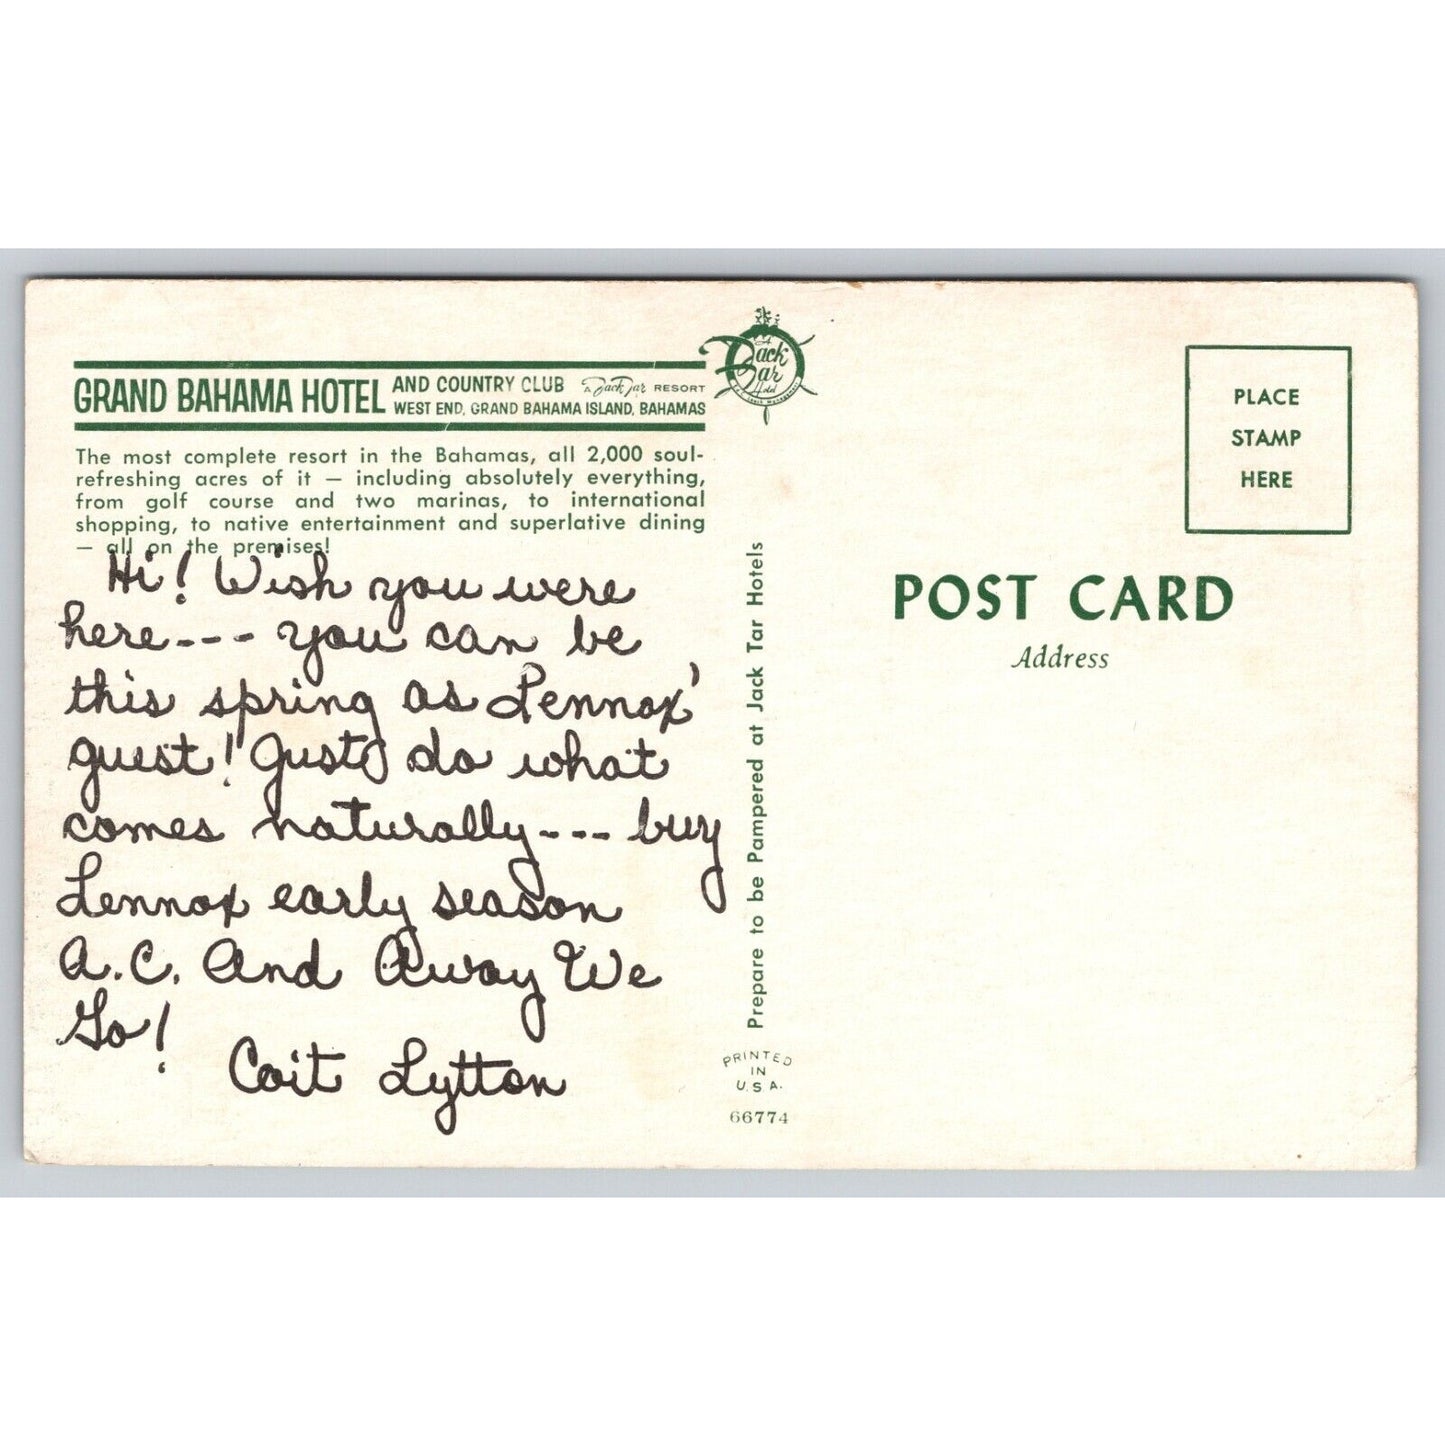 GRAND BAHAMA HOTEL AND COUNTRY CLUB A Jack Tar RESORT
WEST END, GRAND BAHAMA ISLAND, BAHAMAS
The most complete resort in the Bahamas, all 2,000 soul-
refreshing acres of it — including absolutely everything,
from golf course and two marinas, to international
shopping, to native entertainment and superlative dining
— all on the premises!
Hi! Wish you were
here--- you can be
this spring as Lennox'
guest! Just do what
comes naturally--- buy
Lennox early season
A.C. And Away We
Go!
Coit Lytton
A Jack
Tar
Hotel
Prepare to be Pampered at Jack Tar Hotels
PRINTED
IN
U.S.A.
66774
PLACE
STAMP
HERE
POST CARD
Address